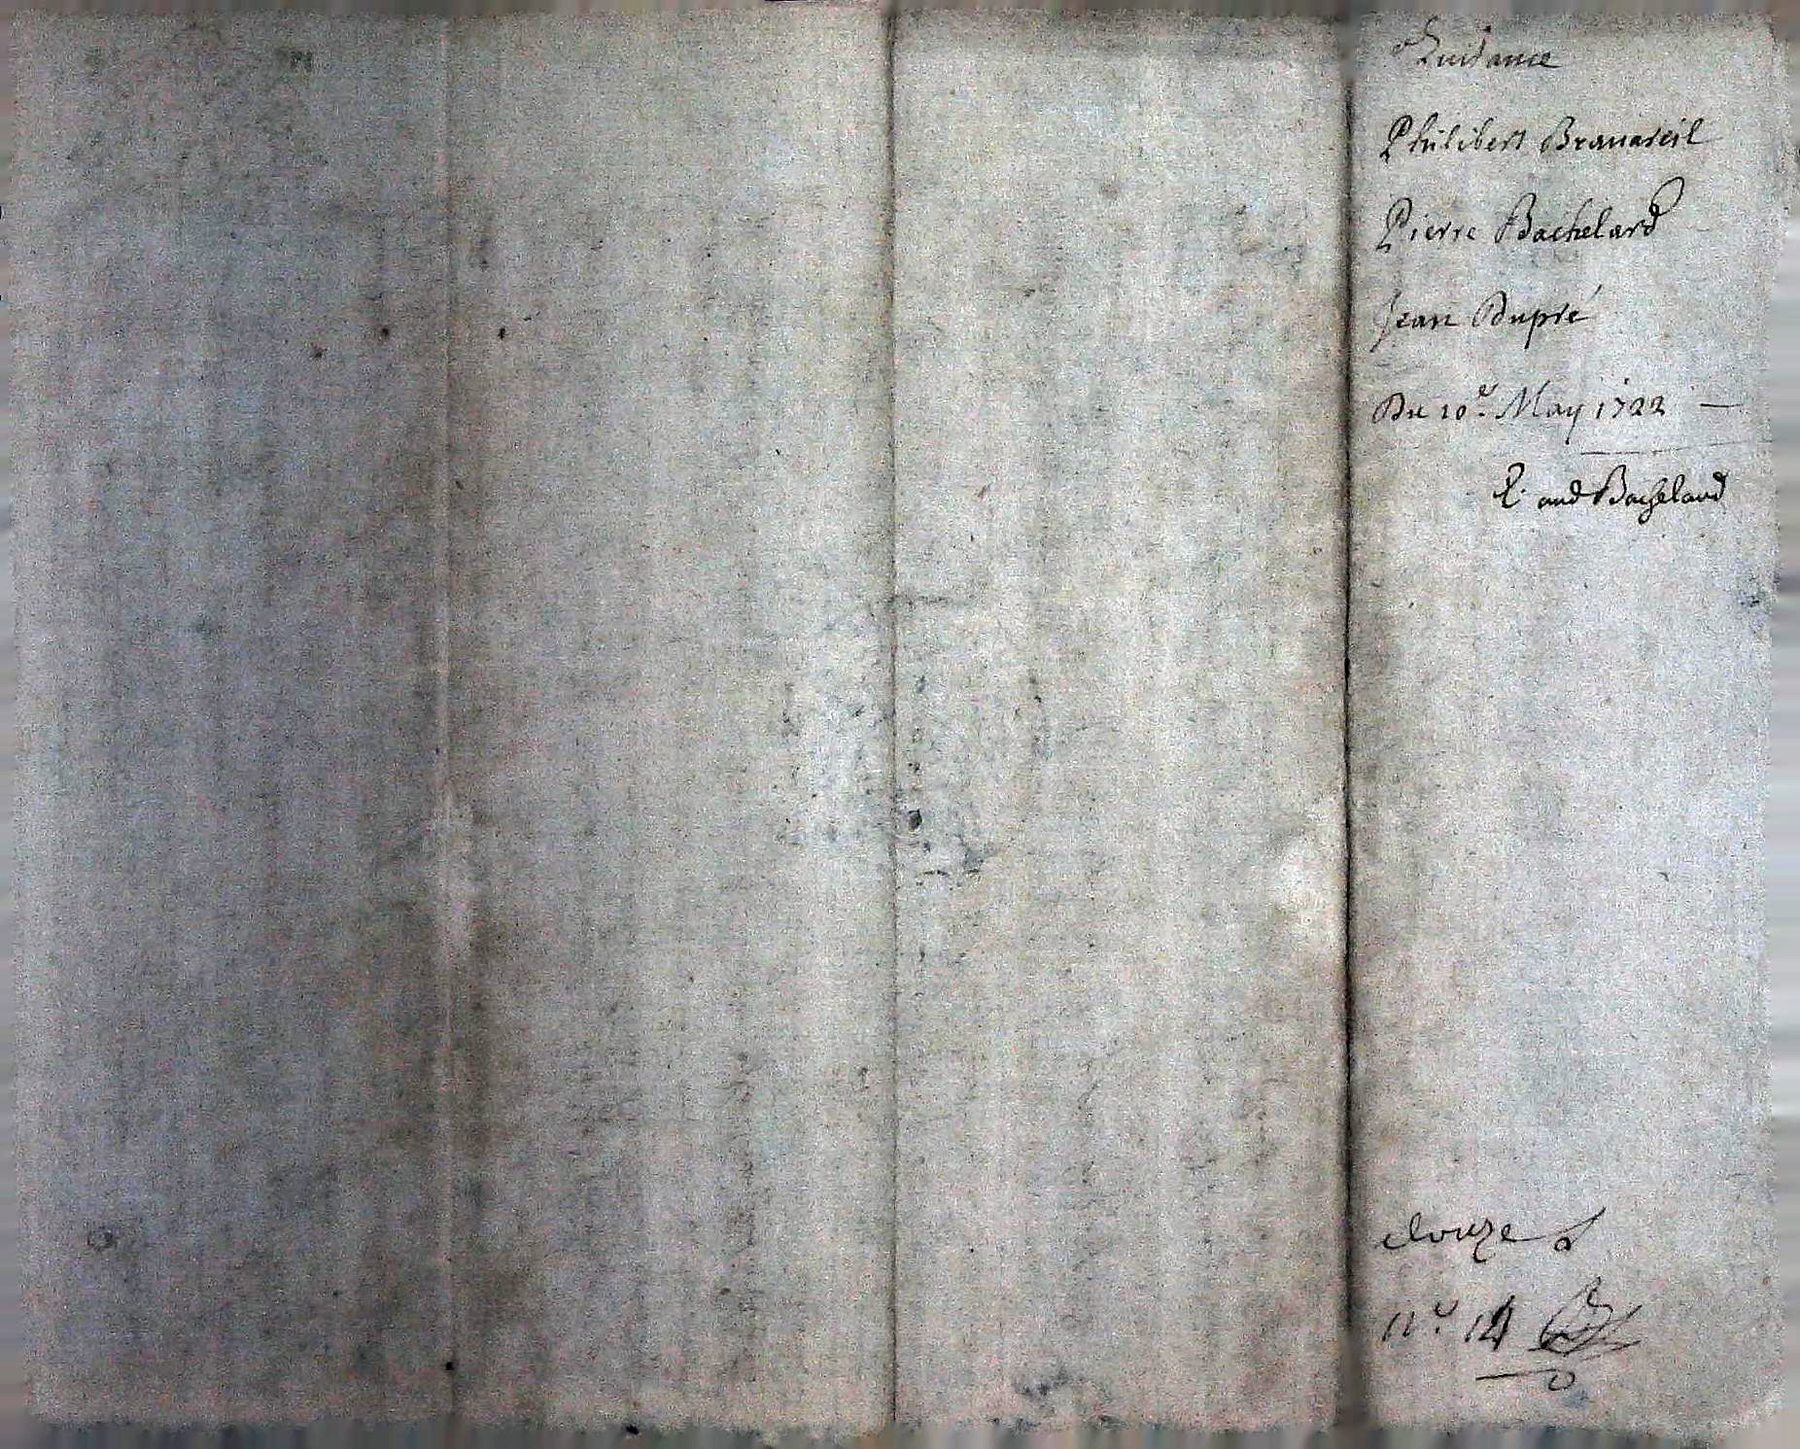 Quitance
Philibert Branaseil
Pierre Bachelard
Jean Dupré
Du 10e. May 1722 —
P. and Bachelard
douze
n.o 14